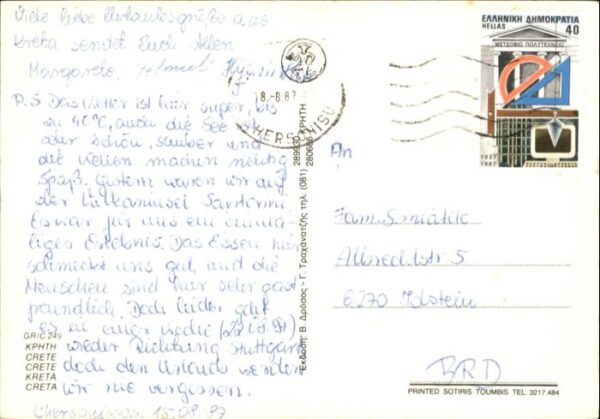 Viele liebe Urlaubsgrüße aus
Kreta sendet Euch Allen
Margarete,
P.S. Das Wetter ist hier super, bis
zu 40°C, auch die See ist
sehr schön, sauber und
die Wellen machen richtig
Spaß. Gestern waren wir auf
der Vulkaninsel Santorini.
Es war für uns ein einma-
liges Erlebnis. Das Essen hier
schmeckt uns gut, und die
Menschen sind hier sehr gast
freundlich. Doch leider geht
es in einer Woche (22.08.87)
wieder Richtung Stuttgart
doch den Urlaub werden
wir nie vergessen.
Chersonissos, 15.08.87
GR/C 249
ΚΡΗΤΗ
CRETE
CRETE
KRETA
CRETA
Έκδοση: Β. Δρόσος - Γ. Τραχανατζής τηλ. (081) 289930 280680 ΚΡΗΤΗ
ΕΛΛΗΝΙΚΗ ΔΗΜΟΚΡΑΤΙΑ
HELLAS
40
ΜΕΤΣΟΒΙΟ ΠΟΛΥΤΕΧΝΕΙΟ
1837
1987
An
Albrechtstr. 5
6270 Idstein
BRD
PRINTED SOTIRIS TOUMBIS TEL. 3217.484